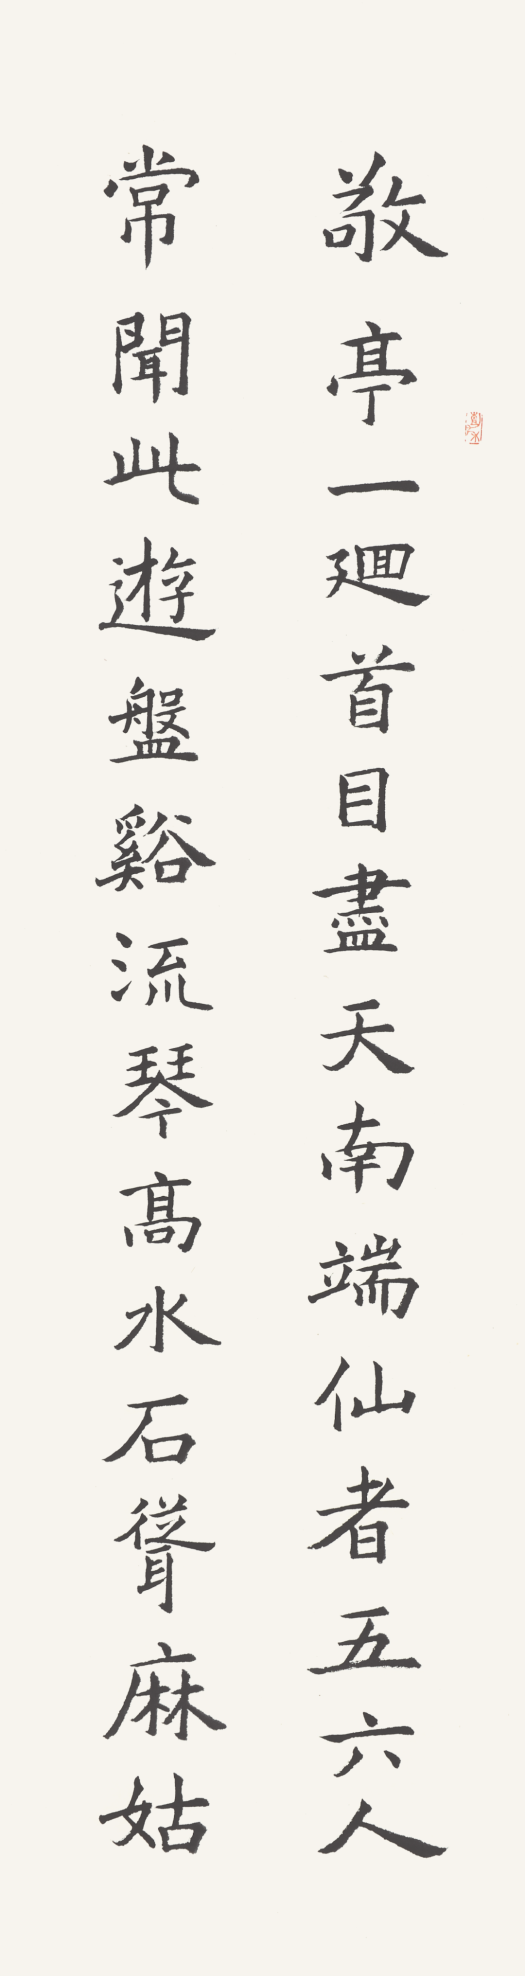 敬亭一廻首目盡天南端仙者五六人
常聞此遊盤谿流琴高水石聳麻姑